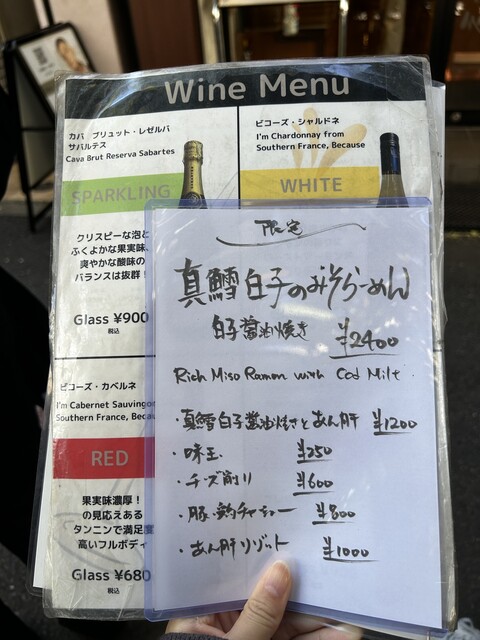 Wine Menu
カバ ブリュット・レゼルバ
サバルテス
Cava Brut Reserva Sabartes
SPARKLING
クリスピーな泡と
ふくよかな果実味、
爽やかな酸味の
バランスは抜群！
Glass ¥900
税込
ビコーズ・シャルドネ
I'm Chardonnay from
Southern France, Because
WHITE
ビコーズ・カベルネ
I'm Cabernet Sauvignon
Southern France, Because
RED
果実味濃厚！
の見応えある
タンニンで満足度
高いフルボディ
Glass ¥680
税込
限定
真鱈白子のみそらーめん
白子醤油焼き ¥2400
Rich Miso Ramen with Cod Milt.
・真鱈白子醤油焼きとあん肝 ¥1200
・味玉 ¥250
・チーズ削り ¥600
・豚・鶏チャーシュー ¥800
・あん肝リゾット ¥1000